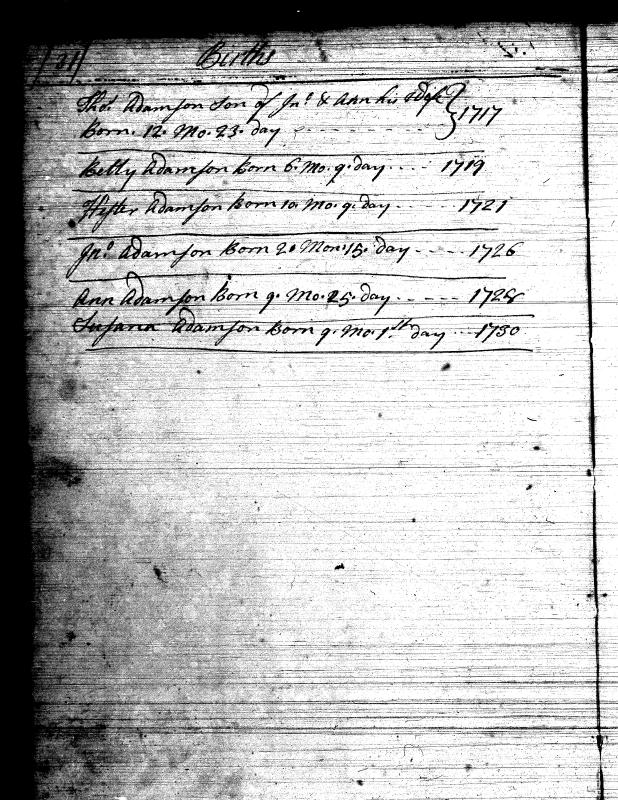 31
Births
Tho.s Adamson Son of Jn.o & Ann his Wife } 1717
Born. 12. Mo. 23. day - - - - - - - -
Betty Adamson Born 6. Mo. 9. day - - - - 1719
Hester Adamson Born 10. Mo. 9. day - - - - - 1721
Jn.o Adamson Born 2. Mon: 15. day - - - - 1726
Ann Adamson Born 9. Mo. 25. day - - - - - 1728
Susana Adamson Born 9. Mo. 1.st day - - - 1730